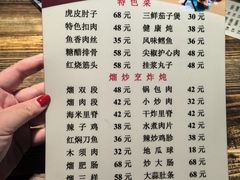 特色菜
虎皮肘子 68元 三鲜茄子煲 30元
特色扣肉 48元 健康炖 38元
鱼香肉丝 35元 风味鳕鱼 36元
糖醋排骨 58元 尖椒护心肉 48元
红烧筋头 58元 挂浆丸子 48元
熘炒烹炸炖
熘双段 48元 锅包肉 42元
熘肉段 42元 小炒肉 32元
海米里脊 42元 干炸里脊 42元
辣子鸡 38元 水煮肉片 42元
红焖刀鱼 36元 辣炒鸡胗 38元
木须肉 32元 地瓜球 18元
熘肥肠 48元 炒大肠 58元
熘三样 58元 大蒜肚条 48元